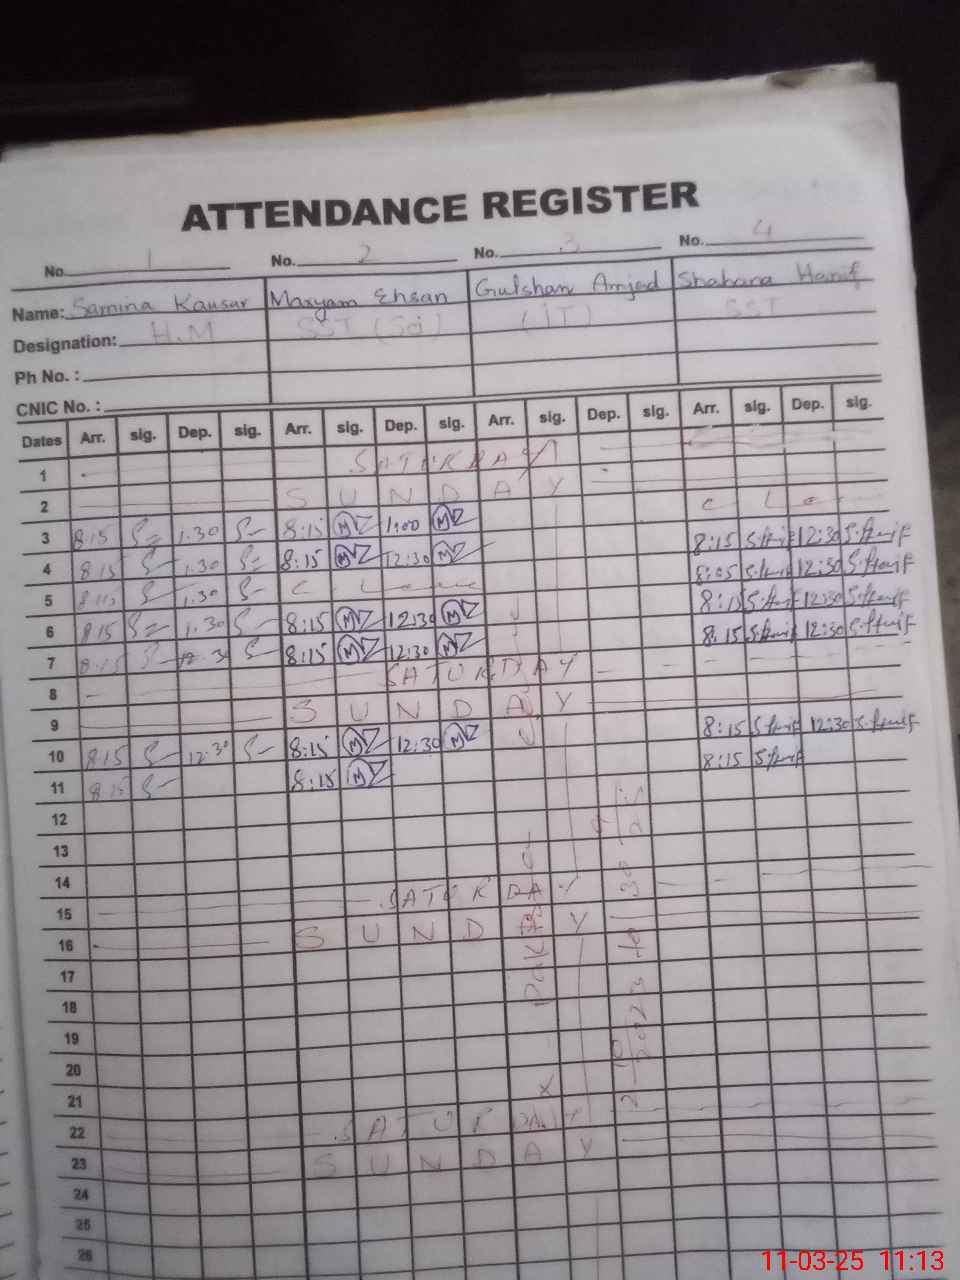 ATTENDANCE REGISTER
No. 1 No. 2 No. 3 No. 4
Name: Samina Kausar Maryam Ehsan Gulshan Amjad Shabana Hanif
Designation: H.M SST (Sci) (IT) SST
Ph No. :
CNIC No. :
Dates Arr. sig. Dep. sig. Arr. sig. Dep. sig. Arr. sig. Dep. sig. Arr. sig. Dep. sig.
1 SATURDAY
2 SUNDAY
3 8:15 1:30 8:15 M 1:00 M C Le
4 8:15 1:30 8:15 M 12:30 M 8:15 S.Hanif 12:30 S.Hanif
5 8:15 1:30 C. Leave 8:05 S.Hanif 12:30 S.Hanif
6 8:15 1:30 8:15 M 12:30 M 8:15 S.Hanif 12:30 S.Hanif
7 8:15 12:30 8:15 M 12:30 M 8:15 S.Hanif 12:30 S.Hanif
8 SATURDAY
9 SUNDAY
10 8:15 12:30 8:15 M 12:30 M 8:15 S.Hanif 12:30 S.Hanif
11 8:15 8:15 M 8:15 S.Hanif
12
13
14
15 SATURDAY
16 SUNDAY
17
18
19
20
21
22 SATURDAY
23 SUNDAY
24
25
26
11-03-25 11:13